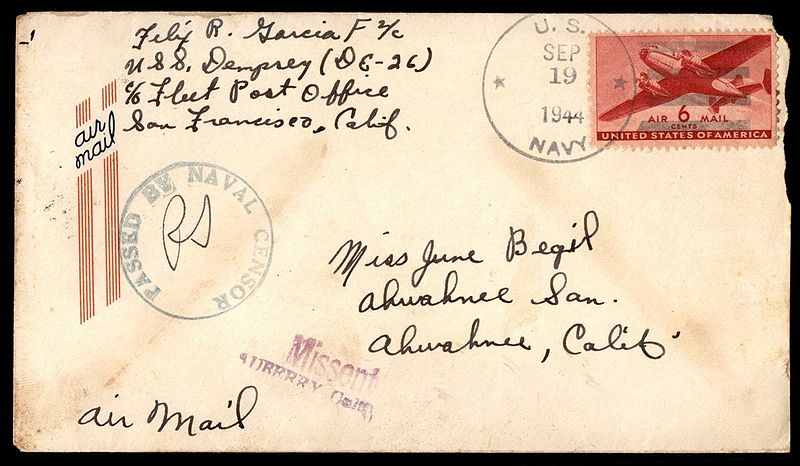 Felix R. Garcia F 2/c
U.S.S. Dempsey (DE-26)
c/o Fleet Post Office
San Francisco, Calif.
air
mail
U. S.
SEP
19
1944
NAVY
AIR 6 MAIL
CENTS
UNITED STATES OF AMERICA
PASSED BY NAVAL CENSOR
Miss June Begil
Ahwahnee San.
Ahwahnee, Calif.
Missent
AUBERRY Calif
air Mail